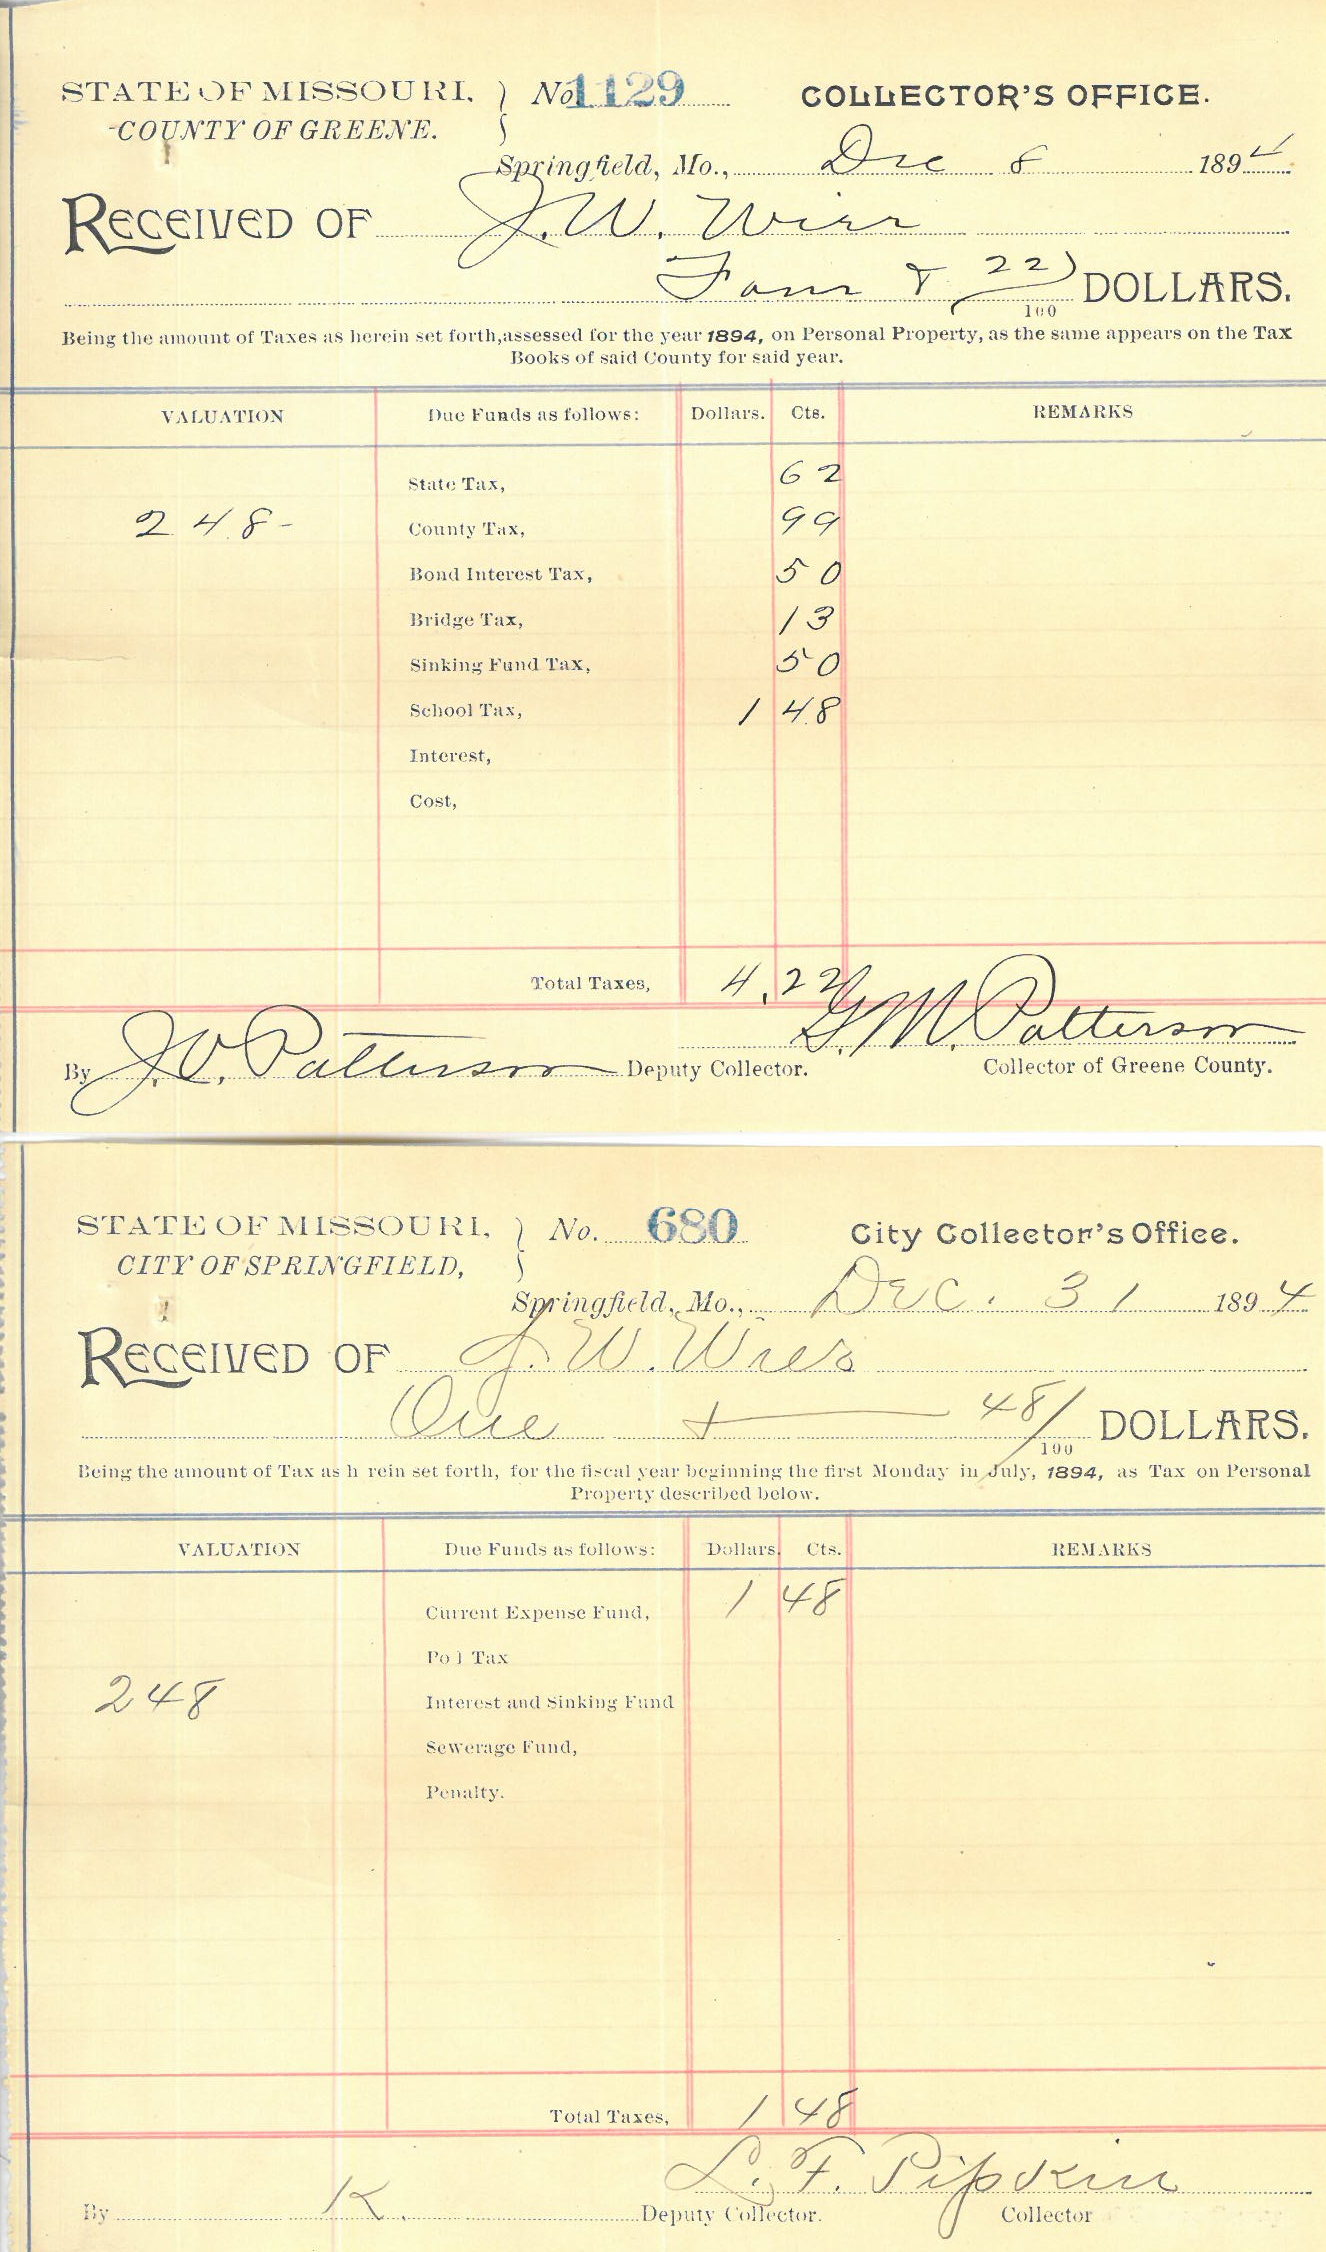 STATE OF MISSOURI, } No. 1129 COLLECTOR'S OFFICE.
COUNTY OF GREENE.
Springfield, Mo., Dec 8 1894
RECEIVED OF J. W. Wier
Four & 22/100 DOLLARS.
Being the amount of Taxes as herein set forth, assessed for the year 1894, on Personal Property, as the same appears on the Tax
Books of said County for said year.
VALUATION Due Funds as follows: Dollars. Cts. REMARKS
State Tax, 62
248- County Tax, 99
Bond Interest Tax, 50
Bridge Tax, 13
Sinking Fund Tax, 50
School Tax, 1 48
Interest,
Cost,
Total Taxes, 4.22
G. M. Patterson
By J. V. Patterson Deputy Collector. Collector of Greene County.
STATE OF MISSOURI, } No. 680 City Collector's Office.
CITY OF SPRINGFIELD,
Springfield, Mo., Dec. 31 1894
RECEIVED OF J. W. Wier
One + 48/100 DOLLARS.
Being the amount of Tax as h rein set forth, for the fiscal year beginning the first Monday in July, 1894, as Tax on Personal
Property described below.
VALUATION Due Funds as follows: Dollars. Cts. REMARKS
Current Expense Fund, 1 48
Po l Tax
248 Interest and Sinking Fund
Sewerage Fund,
Penalty.
Total Taxes, 1 48
L. F. Pipkin
By K. Deputy Collector. Collector